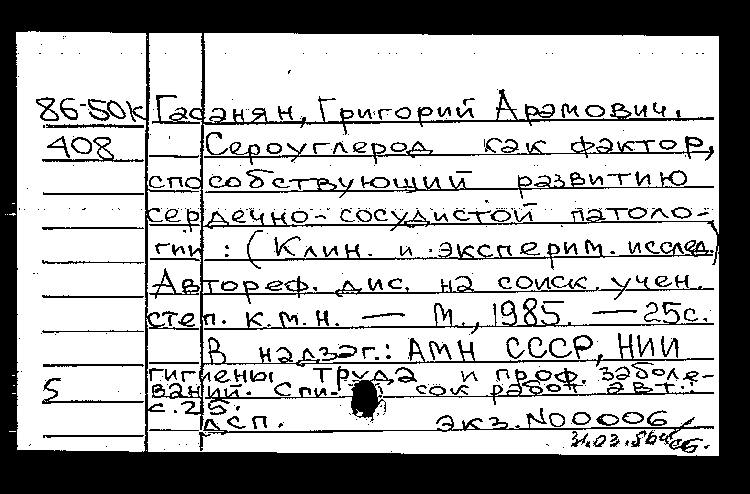 86-50к Гасанян, Григорий Арамович.
408 Сероуглерод как фактор,
способствующий развитию
сердечно-сосудистой патоло-
гии : (Клин. и эксперим. исслед.)
Автореф. дис. на соиск. учен.
степ. к.м.н. — М., 1985. — 25с.
В надзаг.: АМН СССР, НИИ
гигиены труда и проф. заболе-
5 ваний. Спи- сок работ авт.:
с.25.
экз.N00006
31.03.86